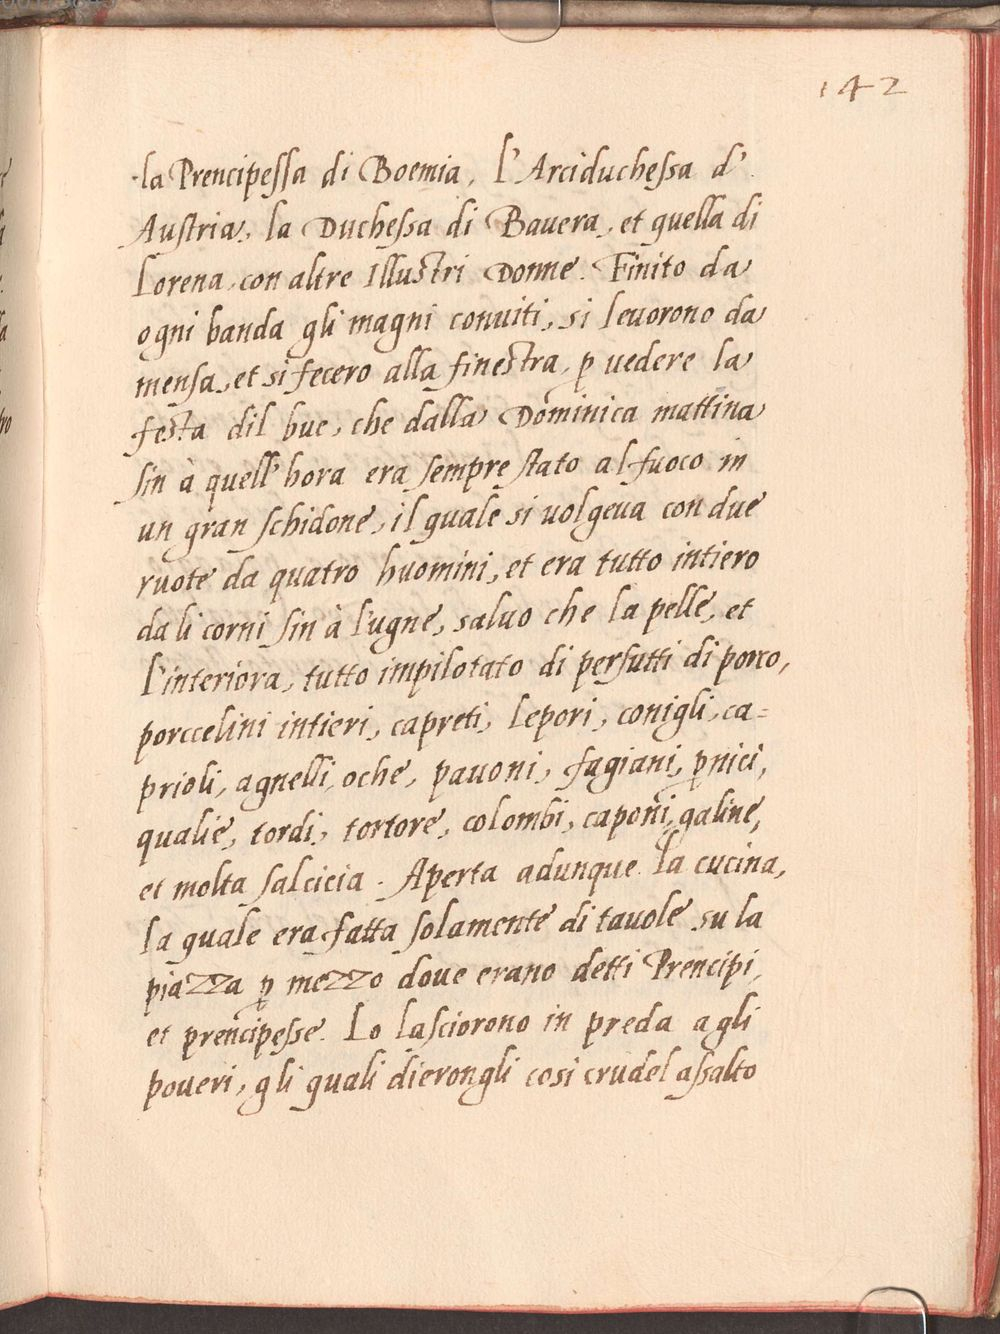 142
la Prencipessa di Boemia, l'Arciduchessa d'
Austria, la Duchessa di Bauera, et quella di
Lorena, con altre Illustri Donne. Finito da
ogni banda gli magni conuiti, si leuorono da
mensa, et si fecero alla finestra, ꝑ uedere la
festa dil bue, che dalla Dominica mattina
sin à quell'hora era sempre stato al fuoco in
un gran schidone, il quale si uolgeua con due
ruote da quatro huomini, et era tutto intiero
da li corni sin à l'ugne, saluo che la pelle, et
l'interiora, tutto impilotato di persutti di porco,
porccelini intieri, capreti, lepori, conigli, ca=
prioli, agnelli, oche, pauoni, fagiani, ꝑnici,
qualie, tordi, tortore, colombi, caponi, galine,
et molta salcicia. Aperta adunque la cucina,
la quale era fatta solamente di tauole su la
piazza ꝑ mezzo doue erano detti Prencipi,
et prencipesse. Lo lasciorono in preda agli
poueri, gli quali dierongli cosi crudel assalto